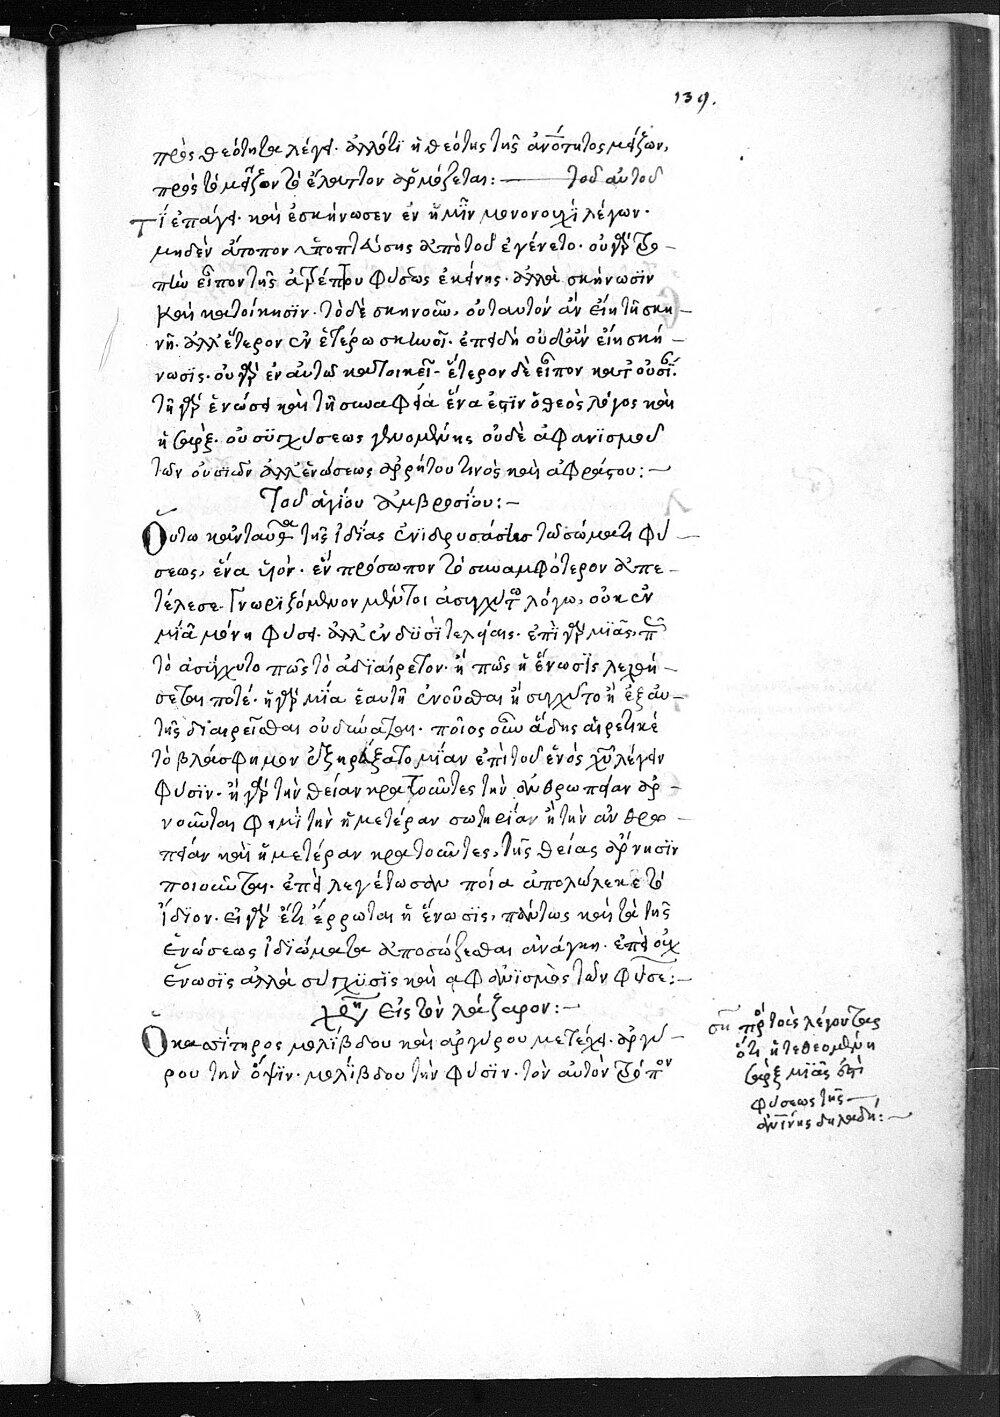 139.
πρὸς θεότητα λέγει. ἀλλότι ἡ θεότης τῆς ἀνότητος μείζων,
πρὸς τὸ μεῖζον τὸ ἔλαττον ἁρμόζεται:— τοῦ αὐτοῦ
Τί ἐπάγει. καὶ ἐσκήνωσεν ἐν ἡμῖν μονονουχὶ λέγων.
μηδὲν ἄτοπον ὑποπτεύσῃς ἀπὸ τοῦ ἐγένετο. οὐ γὰρ τρο-
πὴν εἶπον τῆς ἀτρέπτου φύσεως ἐκείνης. ἀλλὰ σκήνωσιν
καὶ κατοίκησιν. τὸ δὲ σκηνοῦν, οὐ ταυτὸν ἂν εἴη τῇ σκη-
νῇ. ἀλλ' ἕτερον ἐν ἑτέρῳ σκηνοῖ. ἐπειδὴ οὐδ' ἂν εἴη σκή-
νωσις. οὐ γὰρ ἐν αὐτῷ κατοικεῖ. ἕτερον δὲ εἶπον κατ' οὐσί.
τῇ γὰρ ἑνώσει καὶ τῇ συναφείᾳ ἕνα ἐστὶν ὁ θεὸς λόγος καὶ
ἡ σὰρξ. οὐ συγχύσεως γενομένης οὐδὲ ἀφανισμοῦ
τῶν οὐσιῶν ἀλλ' ἑνώσεως ἀρρήτου τινὸς καὶ ἀφράστου:—
Τοῦ ἁγίου Ἀμβροσίου:—
Οὕτω κἀνταῦθα τῆς ἰδίας ἐνιδρυσάσης τῷ σώματι φύ-
σεως, ἕνα υἱὸν. ἓν πρόσωπον τὸ συναμφότερον ἀπε-
τέλεσε. Γνωριζόμενον μέντοι ἀσυγχύτῳ λόγῳ, οὐκ ἐν
μιᾷ μόνῃ φύσει. ἀλλ' ἐν δυσὶ τελείαις. ἐπὶ γὰρ μιᾶς,
τὸ ἀσύγχυτο πῶς τὸ ἀδιαίρετον. ἢ πῶς ἡ ἕνωσις λεχθή-
σεται ποτέ. ἡ γὰρ μία ἑαυτῇ ἑνοῦσθαι ἢ συγχυτο ἢ ἐξ αυ-
τῆς διαιρεῖσθαι οὐ δύναται. ποῖος οὖν ᾅδης αἱρετικὲ
τὸ βλάσφημον ἐξηρεύξατο μίαν ἐπὶ τοῦ ἑνὸς χυ λέγειν
φύσιν. ἢ γὰρ τὴν θείαν κρατοῦντες τὴν ἀνθρωπείαν ἀρ-
νοῦνται φημὶ τὴν ἡμετέραν σωτηρίαν ἢ τὴν ἀνθρω-
πείαν καὶ ἡμετέραν κρατοῦντες, τῆς θείας ἄρνησιν
ποιοῦνται. ἐπεὶ λεγέτωσαν ποία ἀπολώλεκε τὸ
ἴδιον. εἰ γὰρ ἔτι ἔρρωται ἡ ἕνωσις, πάντως καὶ τὰ τῆς
ἑνώσεως ἰδιώματα ἀποσώζεσθαι ἀνάγκη. ἐπεὶ οὐχ
ἕνωσις ἀλλὰ σύγχυσις καὶ ἀφανισμὸς τῶν φύσε:—
Εἰς τὸν λάζαρον:—
Ὁ κασσίτηρος μολίβδου καὶ ἀργύρου μετέχει. ἀργύ-
ρου τὴν ὄψιν. μολίβδου τὴν φύσιν. τὸν αὐτὸν τρόπον
ση πρ τοὺς λέγοντας
ὅτι ἡ τεθεομένη
σὰρξ μιᾶς ἐστὶ
φύσεως τῆς
ἀνίνης δηλαδή:—